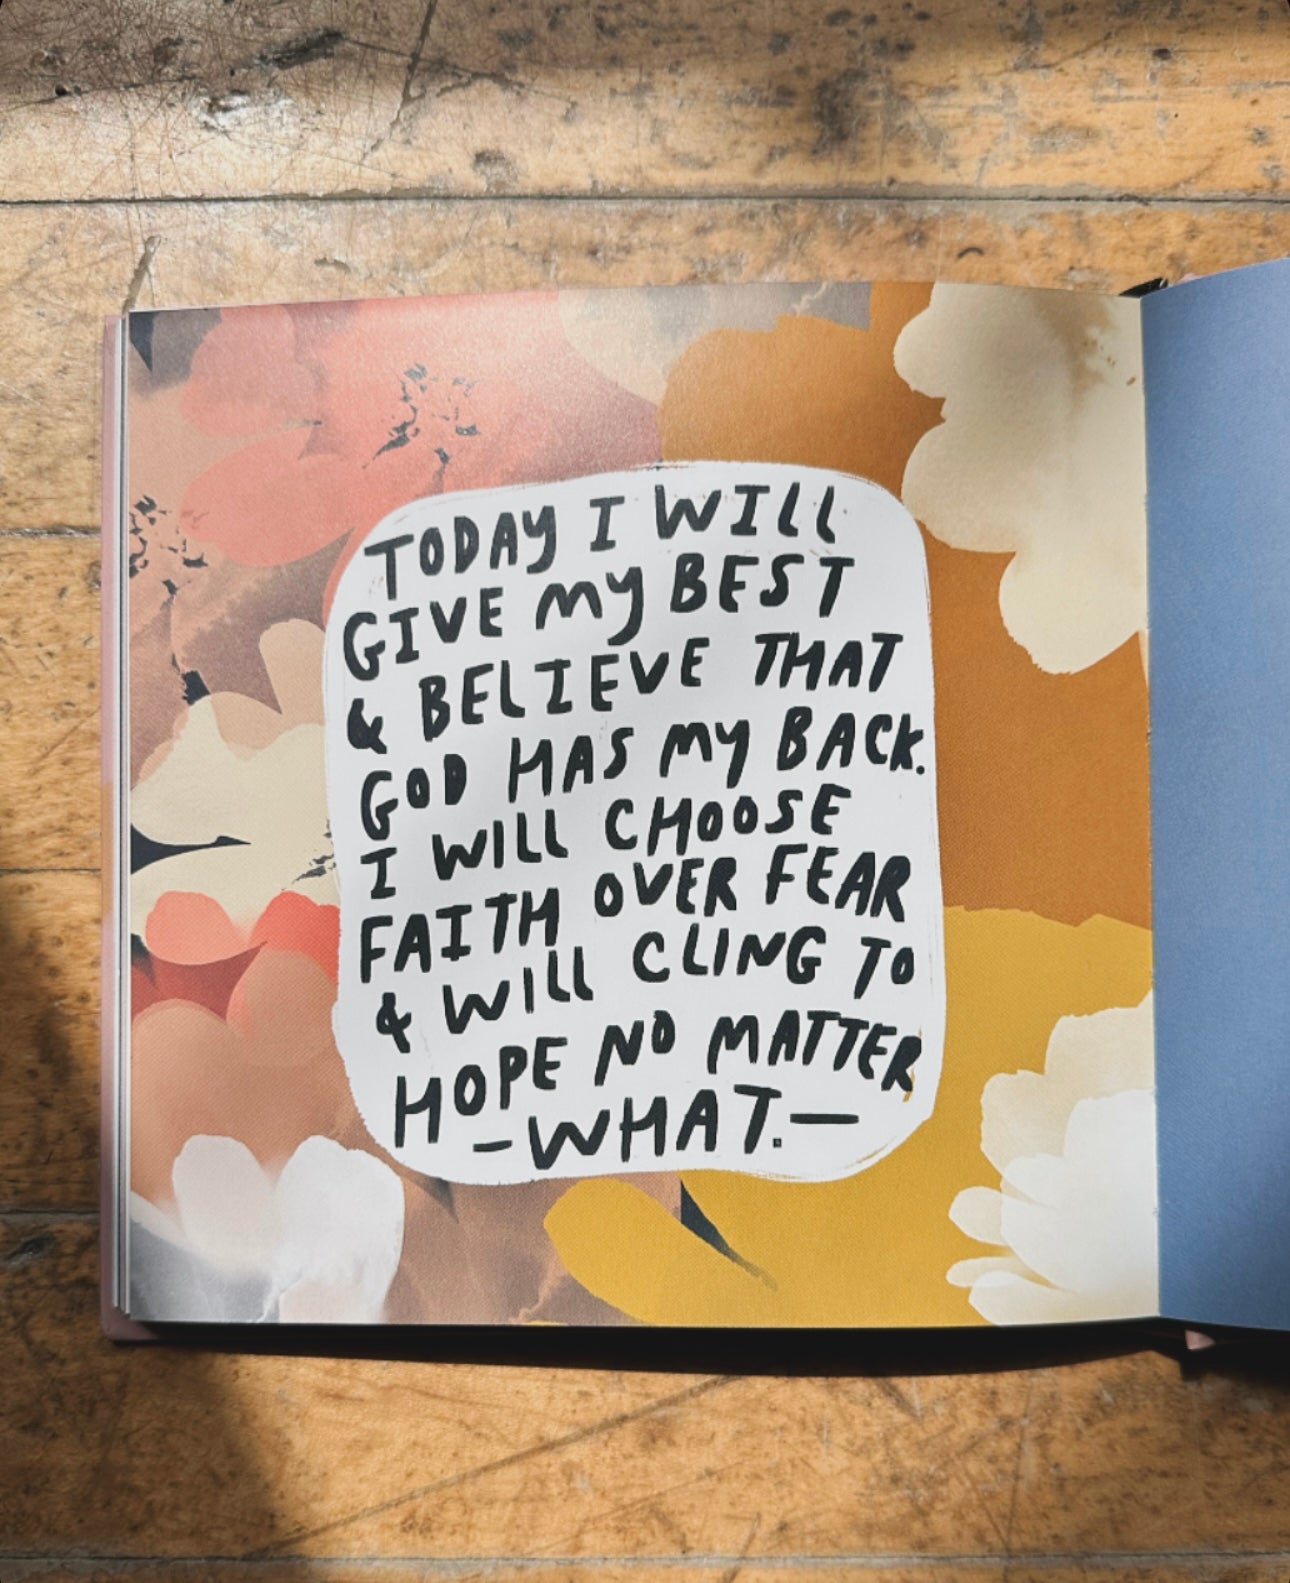 TODAY I WILL
GIVE MY BEST
& BELIEVE THAT
GOD HAS MY BACK.
I WILL CHOOSE
FAITH OVER FEAR
& WILL CLING TO
HOPE NO MATTER
—WHAT.—